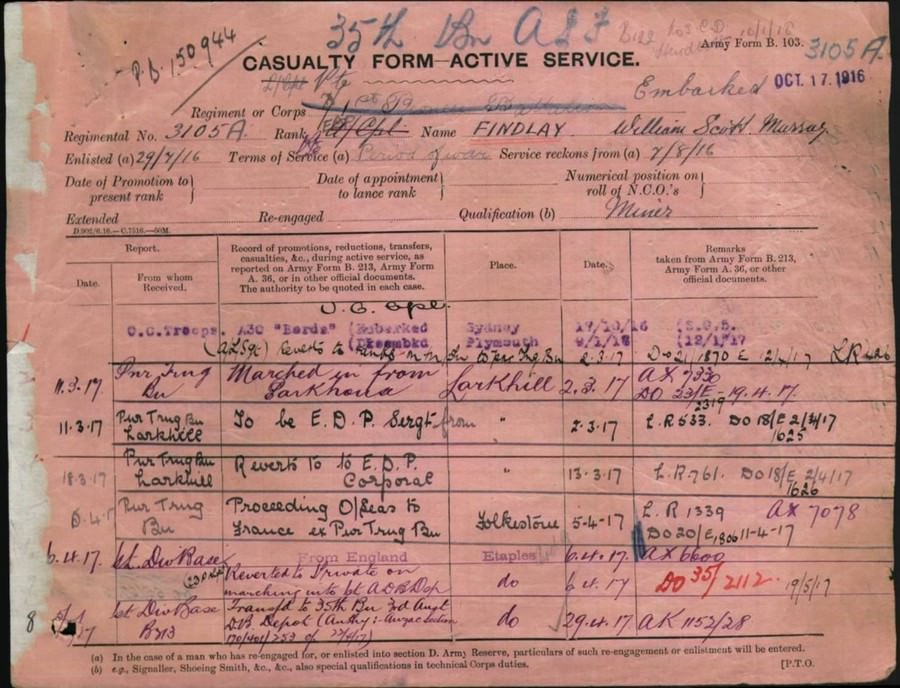 35th Bn AIF
10/1/18
P.B. 150944
Army Form B. 103.
3105 A.
CASUALTY FORM—ACTIVE SERVICE.
Pte
Embarked OCT. 17. 1916
Regiment or Corps 1st Pioneer Battalion
Regimental No. 3105A Rank A/Cpl Name FINDLAY William Scott Murray
Enlisted (a) 29/7/16 Terms of Service (a) Period of war Service reckons from (a) 7/8/16
Date of Promotion to present rank } Date of appointment to lance rank } Numerical position on roll of N.C.O.'s }
Extended Re-engaged Qualification (b) Miner
D.902/6.16.—C.7516.—50M.
Report.
Date. From whom Received.
Record of promotions, reductions, transfers, casualties, &c., during active service, as reported on Army Form B. 213, Army Form A. 36, or in other official documents. The authority to be quoted in each case.
Place.
Date.
Remarks taken from Army Form B. 213, Army Form A. 36, or other official documents.
O.C. Troops. A30 "Borda" (Embarked Sydney 17/10/16
(Disembkd Plymouth 9/1/18
(A/Sgt) reverts to ranks 2.3.17 DO 21/1870 E 12/4/17
11.3.17 Pnr Trng Bn Marched in from Parkhouse Larkhill 2.3.17 AX 7330
DO 23/E 2319 19.4.17
11.3.17 Pnr Trng Bn Larkhill To be E.D.P. Sergt from " 2.3.17 L.R 533. DO 18/E 2/4/17
1625
18.3.17 Pnr Trng Bn Larkhill Reverts to E.D.P. Corporal " 13.3.17 L.R 761. DO 18/E 2/4/17
1626
Pnr Trng Bn Proceeding O/Seas to France ex Pnr Trng Bn Folkestone 5-4-17 L.R 1339 AX 7078
DO 20/E 1806 11-4-17
6.4.17. 1st Div Base From England Etaples 6.4.17. AX 6600
Reverted to Private on marching into 1st A D B Dep do 6.4.17 DO 35/2112 19/5/17
8 1st Div Base B213 Transfd to 35th Bn 3rd Aust DB Depot (Authy:- Anzac Section do 29.4.17 AK 1152/28
(a) In the case of a man who has re-engaged for, or enlisted into section D. Army Reserve, particulars of such re-engagement or enlistment will be entered.
(b) e.g., Signaller, Shoeing Smith, &c., &c., also special qualifications in technical Corps duties. [P.T.O.